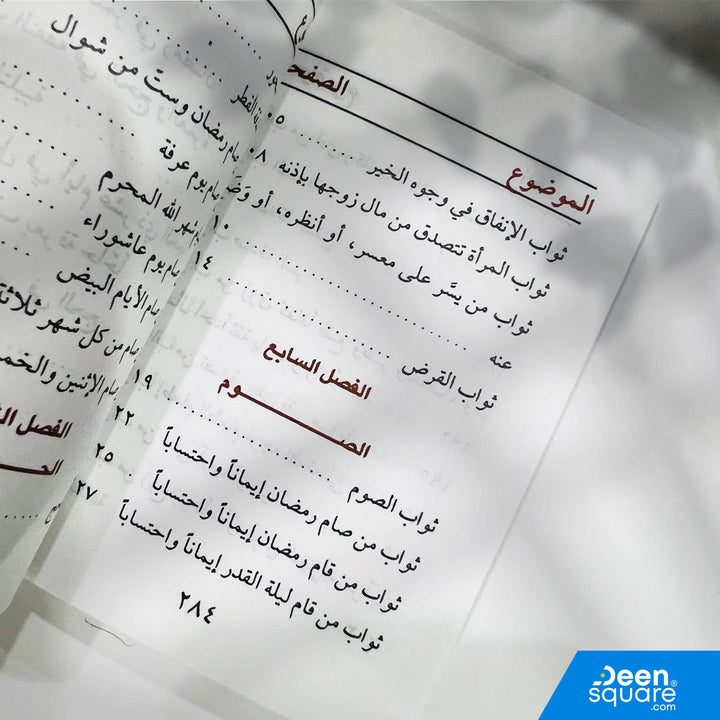 الموضوع الصفحة
ثواب الإنفاق في وجوه الخير ........ ٠٥
ثواب المرأة تتصدق من مال زوجها بإذنه ٠٨
ثواب من يسَّر على معسر، أو أنظره، أو
عنه ........ ١٠
ثواب القرض ........ ١٤
الفصل السابع
الصــــوم
ثواب الصوم ........ ١٩
ثواب من صام رمضان إيماناً واحتساباً ٢٢
ثواب من قام رمضان إيماناً واحتساباً . ٢٥
ثواب من قام ليلة القدر إيماناً واحتساباً ٢٧
٢٨٤
الفطر
صام رمضان وستّ من شوال
صام يوم عرفة
شهر الله المحرم
صام يوم عاشوراء
صام الأيام البيض
صام من كل شهر ثلاثة
صام الإثنين والخم
الفصل
Deen
square®
.com